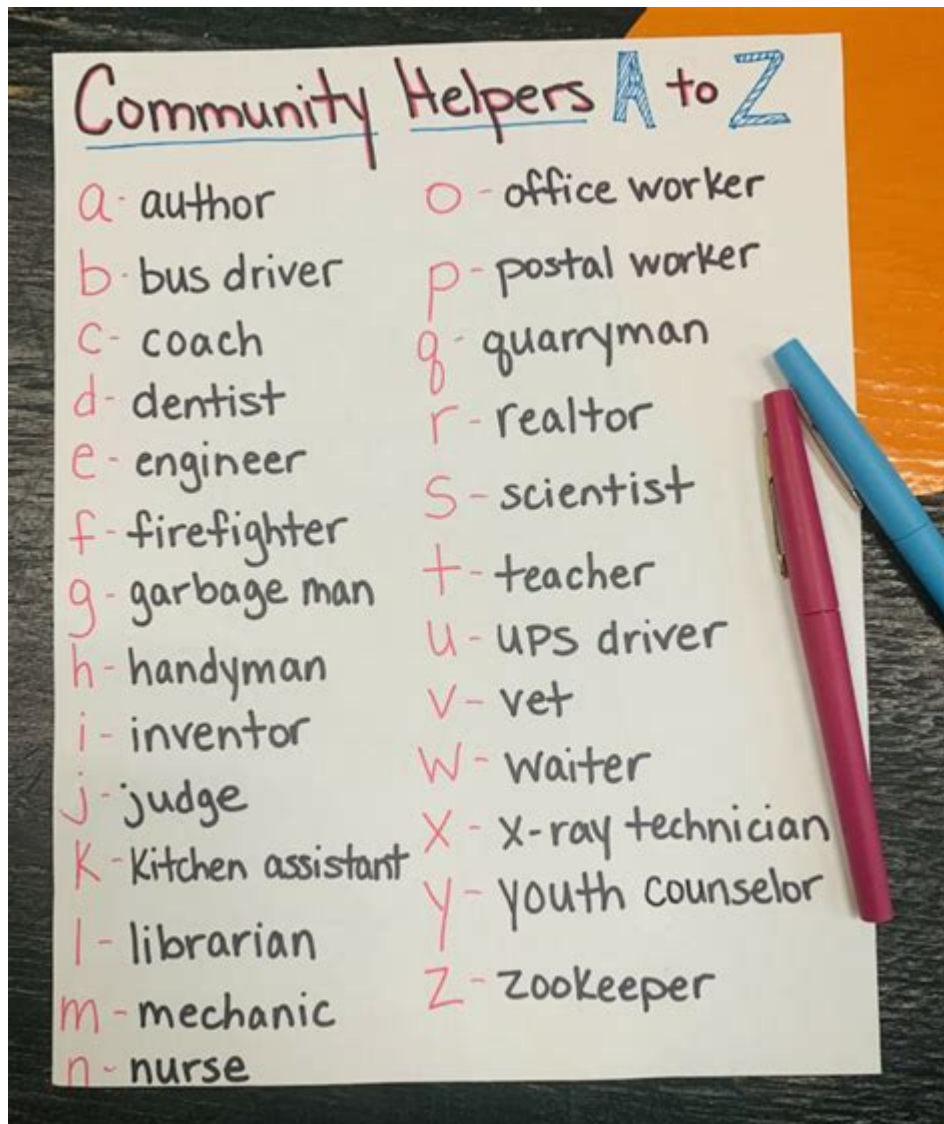 Community Helpers A to Z
a - author
b - bus driver
c - coach
d - dentist
e - engineer
f - firefighter
g - garbage man
h - handyman
i - inventor
j - judge
k - kitchen assistant
l - librarian
m - mechanic
n - nurse
o - office worker
p - postal worker
q - quarryman
r - realtor
s - scientist
t - teacher
u - UPS driver
v - vet
w - waiter
x - x-ray technician
y - youth counselor
z - zookeeper